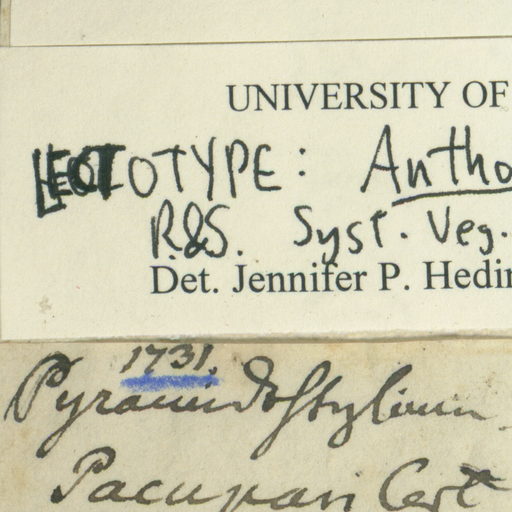 UNIVERSITY OF
LECTOTYPE: Antho
R.&S. Syst. Veg.
Det. Jennifer P. Hedin
1731.
Pyramidostylium
Pacupari Cert